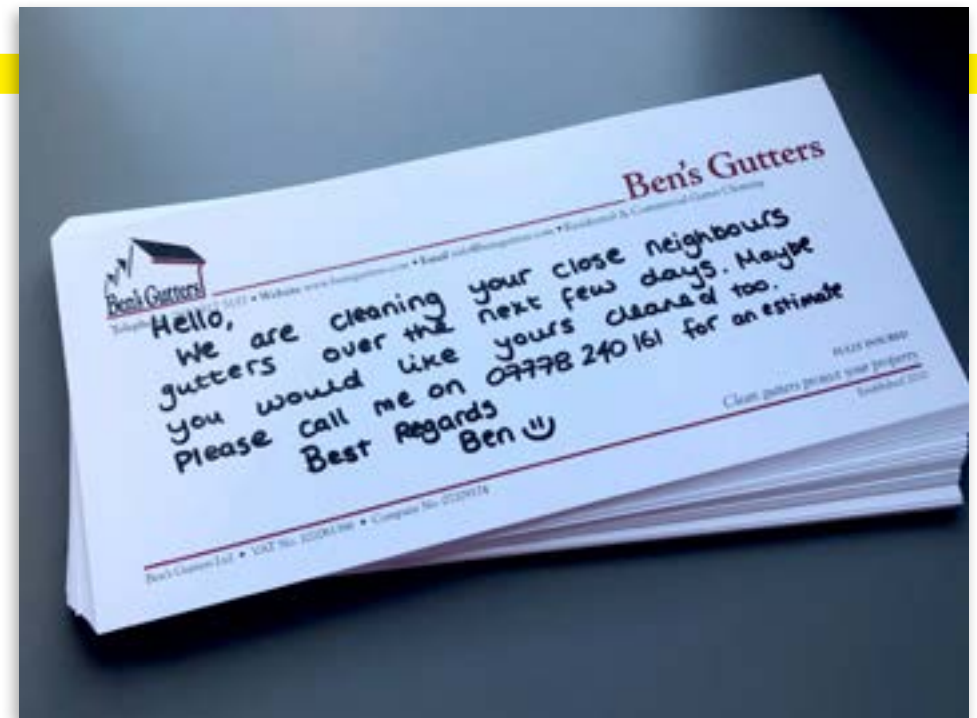 Ben's Gutters
Ben's Gutters
Website www.bensgutters.com • Email • Residential & Commercial Gutter Cleaning
Hello,
We are cleaning your close neighbours
gutters over the next few days. Maybe
you would like yours cleaned too.
Please call me on 07778 240 161 for an estimate
Best Regards
Ben
FULLY INSURED
Clean gutters protect your property
Established
Ben's Gutters Ltd • VAT No. • Company No.